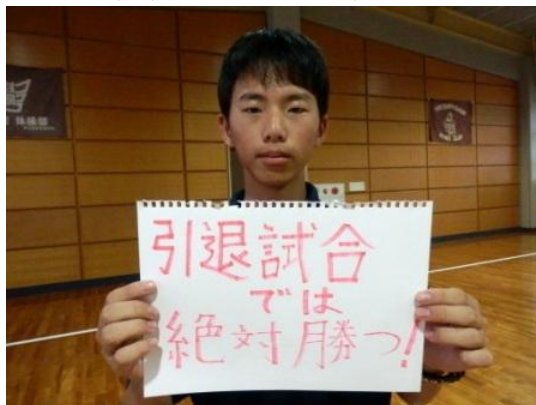 引退試合
では
絶対勝つ!